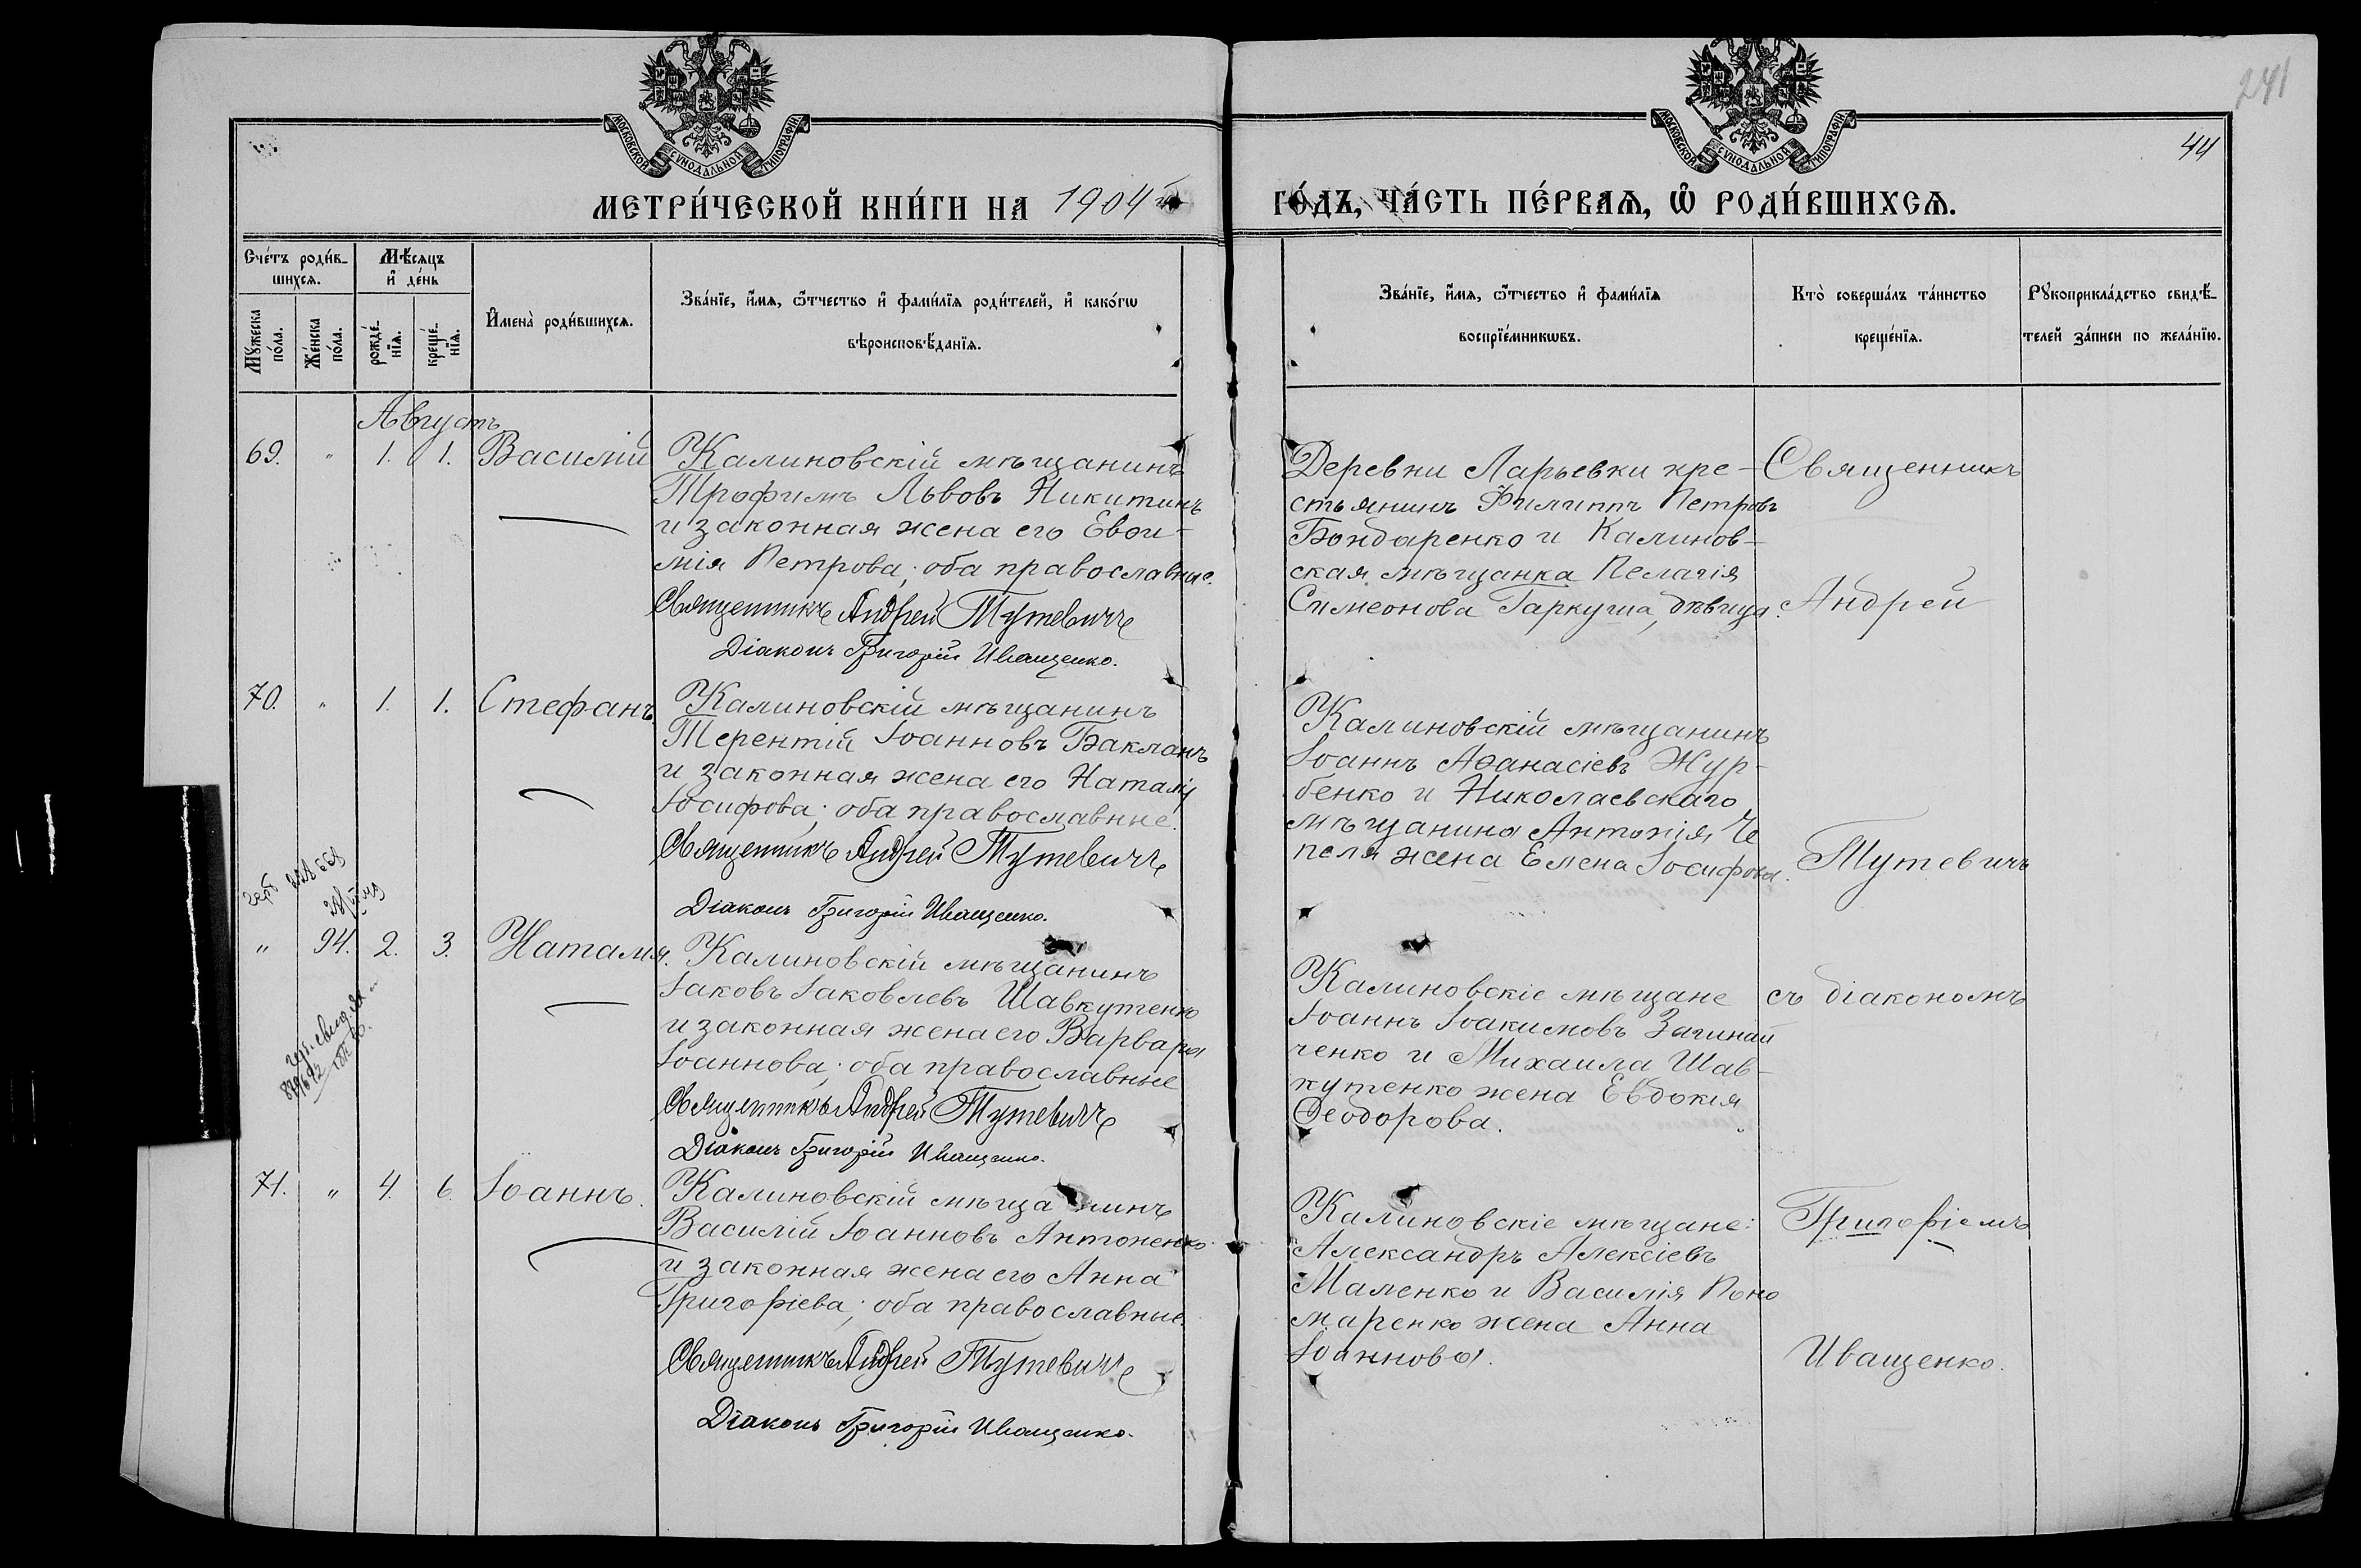 241
44
МОСКОВСКОЙ СѴНОДАЛЬНОЙ ТИПОГРАФІИ
МОСКОВСКОЙ СѴНОДАЛЬНОЙ ТИПОГРАФІИ
МЕТРИ́ЧЕСКОЙ КНИ́ГИ НА 1904 ГО́ДЪ, ЧА́СТЬ ПЕ́РВАѦ, Ѽ РОДИ́ВШИХСѦ.
Сче́тъ роди́в-
шихсѧ.
Мѣ́сяцъ
и҆ де́нь
Мꙋ́жеска
по́ла.
Же́нска
по́ла.
рожде́-
нїѧ.
креще́-
нїѧ.
И҆мена̀ роди́вшихсѧ.
Зва́нїе, и҆́мѧ, ѻ҆́тчество и҆ фами́лїѧ роди́телей, и҆ како́гѡ
вѣроисповѣ́данїѧ.
Зва́нїе, и҆́мѧ, ѻ҆́тчество и҆ фами́лїѧ
воспрїе́мникѡвъ.
Кто̀ соверша́лъ та́инство
креще́нїѧ.
Рꙋкоприкла́дство свидѣ́-
телей за́писи по жела́нїю.
Августъ
69. " 1. 1. Василій
Калиновскій мѣщанинъ
Трофимъ Львовъ Никитинъ
и законная жена его Евѳи-
мія Петрова; оба православные.
Священникъ Андрей Тутевичъ
Діаконъ Григорій Иващенко.
Деревни Ларьевки кре-
стьянинъ Филиппъ Петровъ
Бондаренко и Калинов-
ская мѣщанка Пелагія
Симеонова Гаркуша, дѣвица.
Священникъ
Андрей
70. " 1. 1. Стефанъ
Калиновскій мѣщанинъ
Терентій Іоанновъ Бакланъ
и законная жена его Наталія
Іосифова; оба православные.
Священникъ Андрей Тутевичъ
Діаконъ Григорій Иващенко.
Калиновскій мѣщанинъ
Іоаннъ Аѳанасіевъ Жур-
бенко и Николаевскаго
мѣщанина Антонія Че
пеля жена Елена Іосифова.
Тутевичъ
" 94. 2. 3. Наталія.
Калиновскій мѣщанинъ
Іаковъ Іаковлевъ Шавкутенко
и законная жена его Варвара
Іоаннова; оба православные
Священникъ Андрей Тутевичъ
Діаконъ Григорій Иващенко.
Калиновскіе мѣщане
Іоаннъ Іоакимовъ Загинай
ченко и Михаила Шав-
кутенко жена Евдокія
Ѳеодорова.
съ діакономъ
71. " 4. 6. Іоаннъ.
Калиновскій мѣщанинъ
Василій Іоанновъ Антоненко
и законная жена его Анна
Григоріева; оба православные.
Священникъ Андрей Тутевичъ
Діаконъ Григорій Иващенко.
Калиновскіе мѣщане:
Александръ Алексіевъ
Маленко и Василія Поно
маренко жена Анна
Іоаннова.
Григоріемъ
Иващенко.